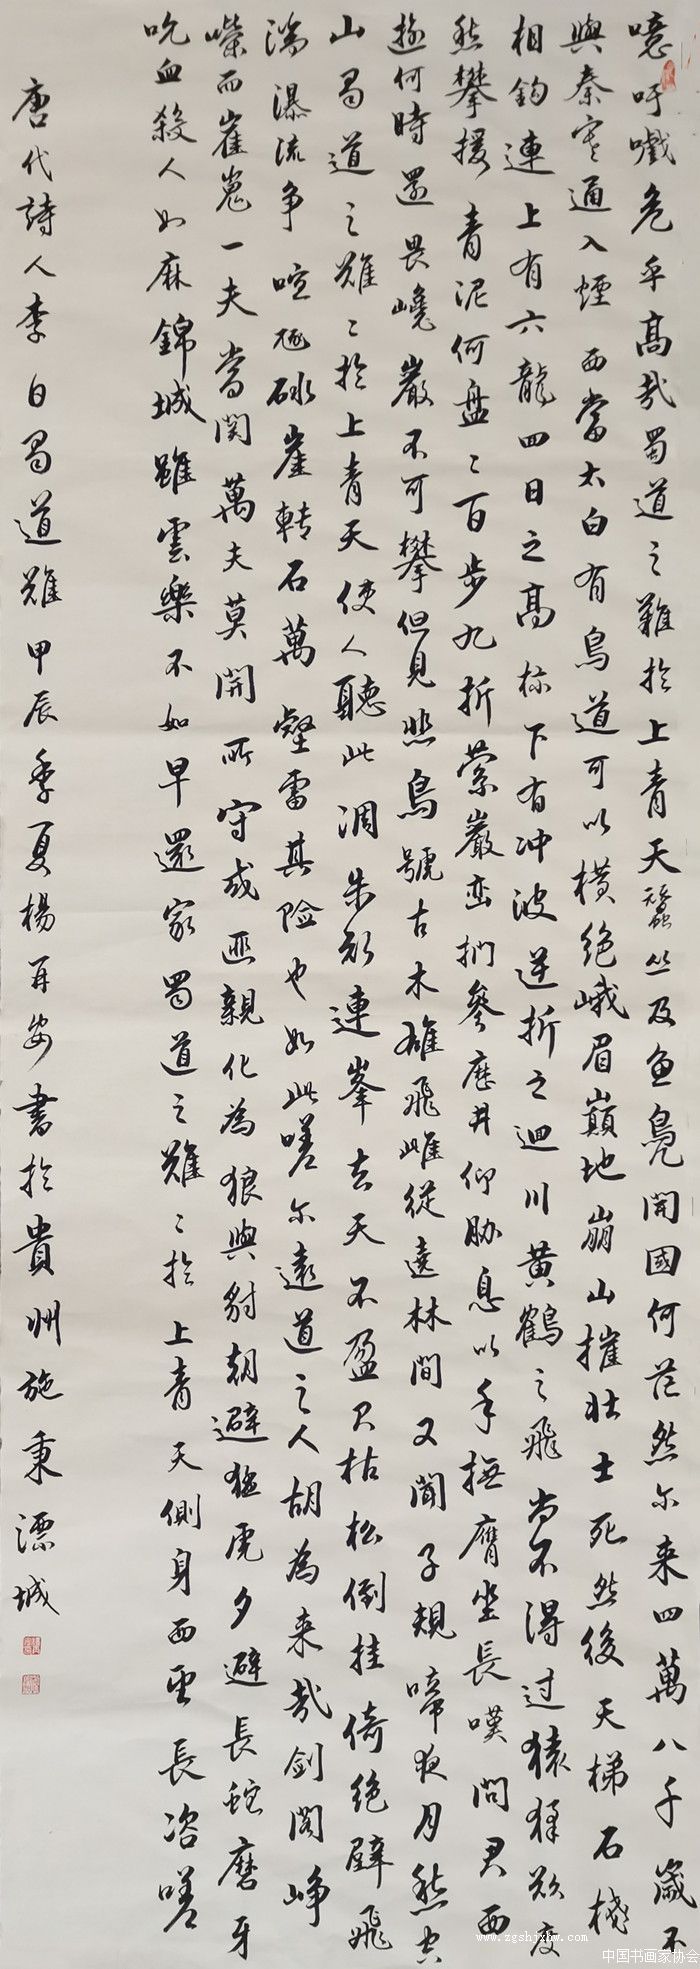 噫吁嚱危乎高哉蜀道之難於上青天蠶丛及魚鳧開國何茫然尔来四萬八千歲不
與秦塞通人煙西當太白有鳥道可以橫絶峨眉巔地崩山摧壮士死然後天梯石棧
相鈎連上有六龍四日之高标下有冲波逆折之迴川黄鶴之飛尚不得过猿猱欲度
愁攀援青泥何盤〻百步九折縈巖峦捫參歷井仰胁息以手撫膺坐長嘆問君西
遊何時還畏嶢巖不可攀但見悲鳥號古木雄飛雌從遶林間又聞子規啼夜月愁空
山蜀道之難〻於上青天使人聽此凋朱顏連峯去天不盈尺枯松倒挂倚绝壁飛
湍瀑流争喧豗砯崖轉石萬壑雷其险也如此嗟尔遠道之人胡為来哉剑閣峥
嶸而崔嵬一夫當関萬夫莫開所守或匪親化為狼與豺朝避猛虎夕避長蛇磨牙
吮血殺人如麻錦城雖雲樂不如早還家蜀道之難〻於上青天側身西望長咨嗟
唐代詩人李白蜀道難甲辰季夏楊再安書於貴州施秉漂城
www.zgshjxhw.com
中国书画家协会